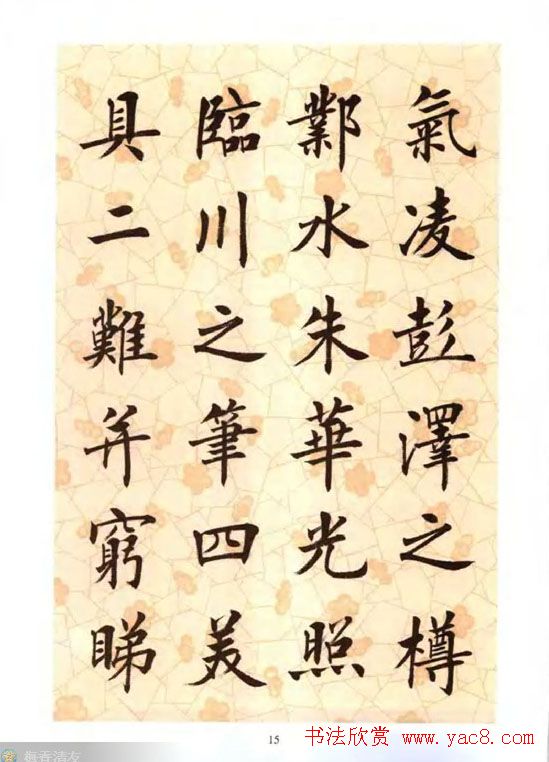 氣凌彭澤之樽
鄴水朱華光照
臨川之筆四美
具二難并窮睇
15
书法欣赏 www.yac8.com
梅香清友